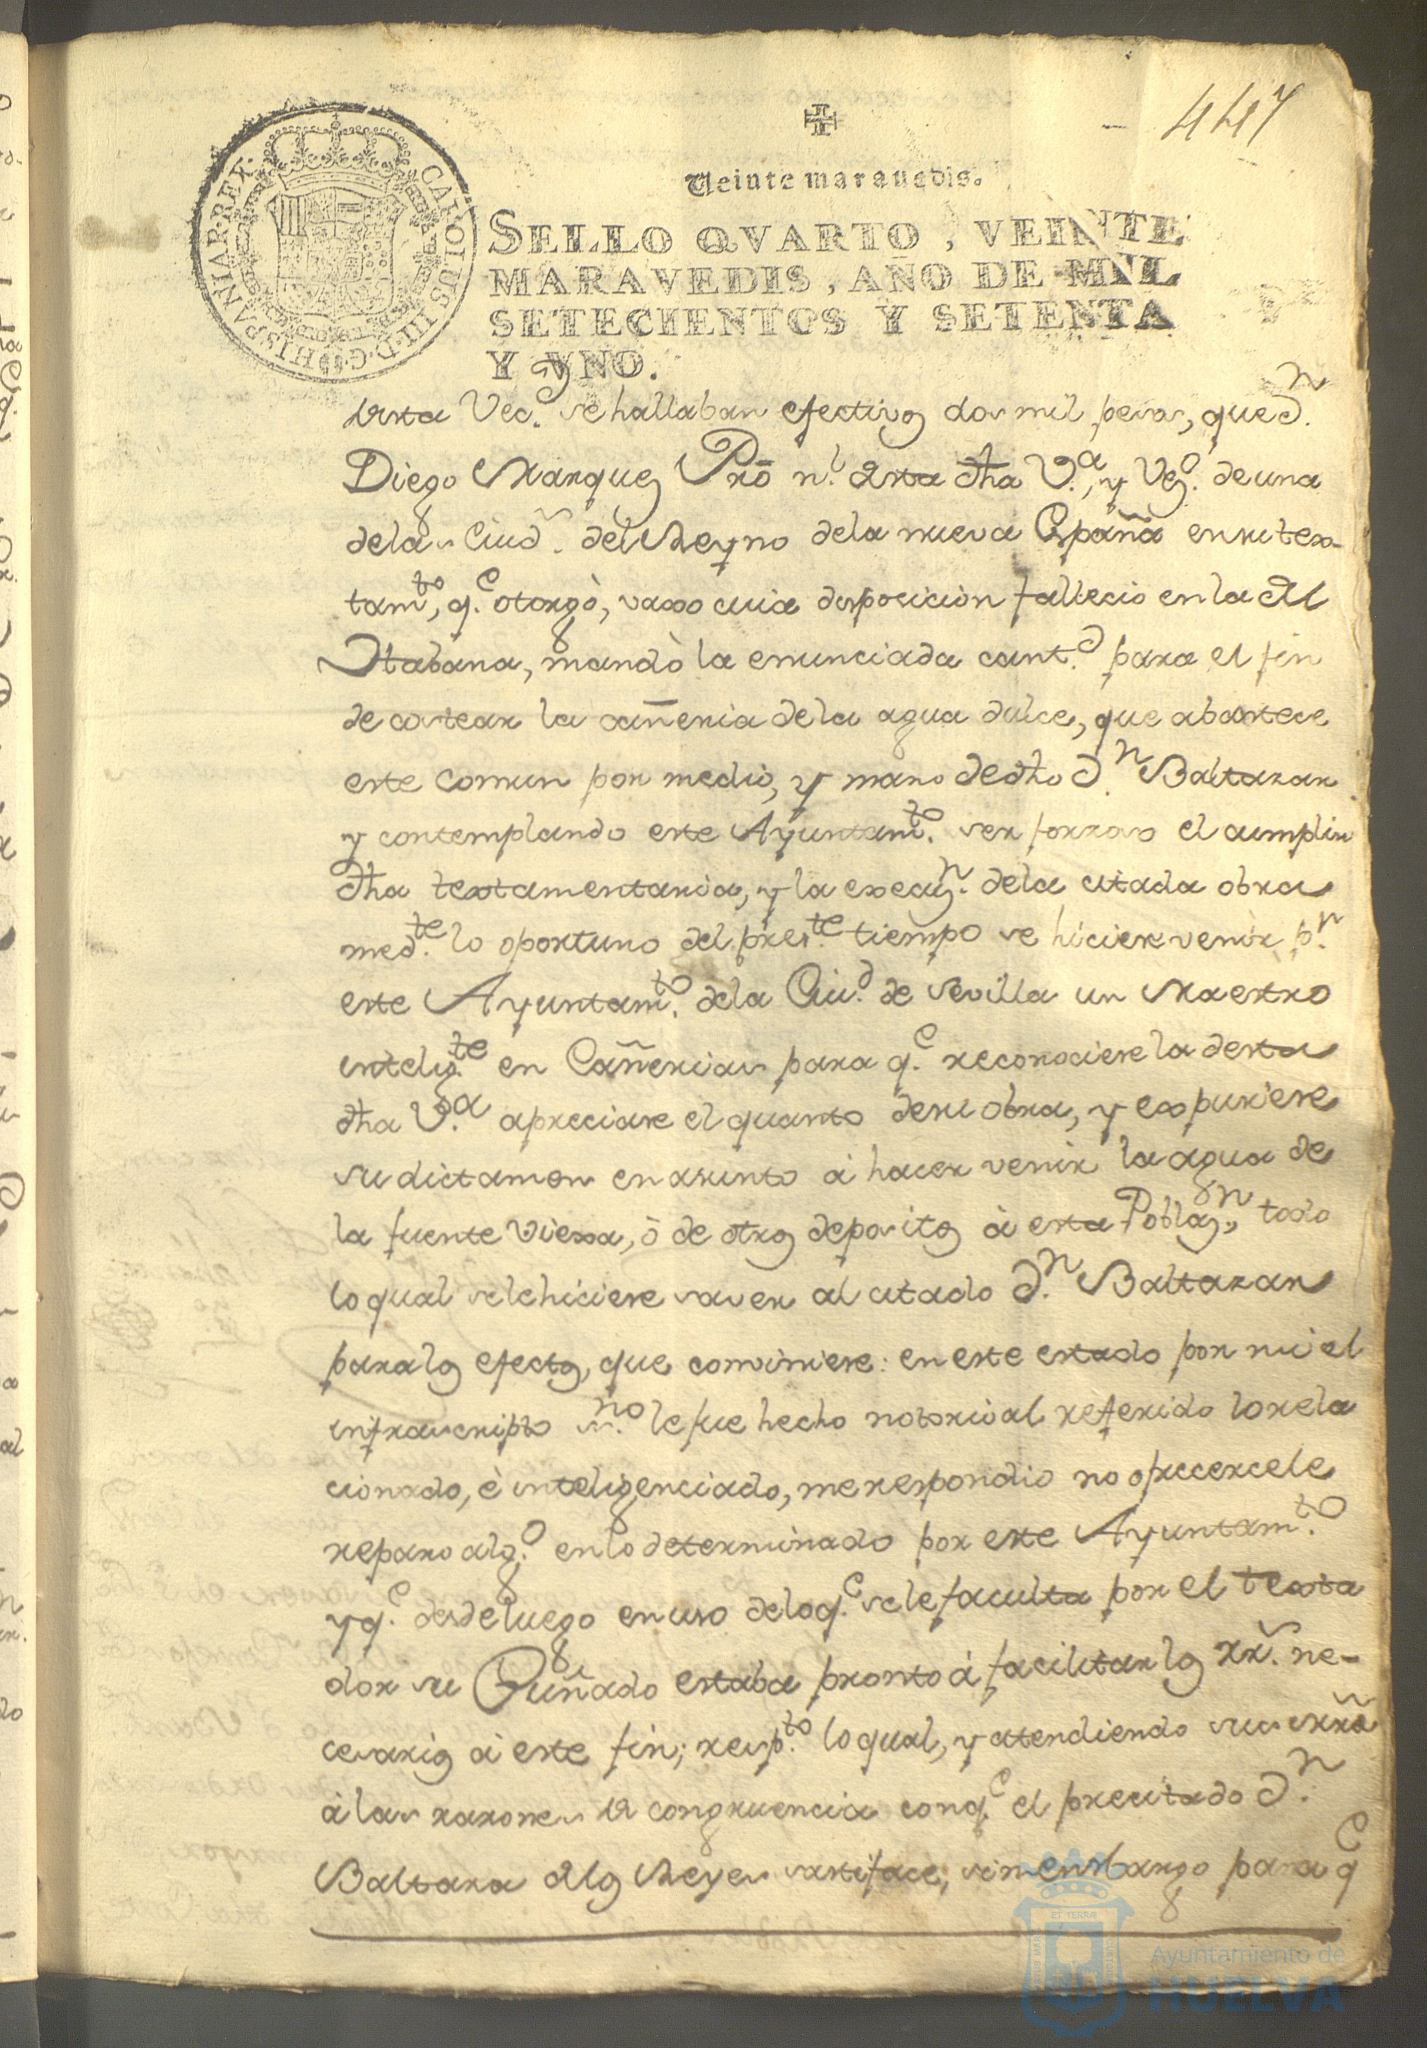 447
Veinte maravedis.
SELLO QVARTO, VEINTE
MARAVEDIS, AÑO DE MIL
SETECIENTOS Y SETENTA
Y VNO.
CAROLUS III D G HISPANIAR REX
desta Vec. se hallaban efectivos dos mil pesos, que Dn.
Diego Marquez Pro nl. desta dha Va., y Vezo. de una
delas Ciuds. del Reyno dela nueva España ensu tes-
tamto, qe. otorgò, vaxo cuia disposicion fallecio en la del
Habana, mandò la enunciada cantd. para el fin
de costear la cañeria dela agua dulce, que abastece
este comun por medio, y mano de dho Dn. Baltazar
y contemplando este Ayuntamto. ser forzoso el cumplir
dha textamentaria, y la execuzn. dela citada obra
medte. lo oportuno del preste. tiempo se hiciese venir pr.
este Ayuntamto. dela Ciud. de Sevilla un Maestro
inteligte. en Cañerias para qe. reconociese la desta
dha Va. apreciase el quanto desu obra, y expusiese
su dictamen en asunto à hacer venir la agua de
la fuente viexa, ò de otros depositos à esta Poblazn., todo
lo qual sele hiciese saver al citado Dn. Baltazar
para los efectos, que conviniese: en este estado por mi el
infrascripto sno. le fue hecho notorio al referido lo rela
cionado, è inteligenciado, me respondio no ofrecersele
reparo algo. en lo determinado por este Ayuntamto.
y qe. desde luego en uso delo qe. sele faculta por el texta
dor su Cuñado estaba pronto à facilitar los rrs. ne-
cesarios à este fin; respto. lo qual, y atendiendo sus
à las razones de congruencia con qe. el precitado Dn.
Baltaza delos Reyes satisface; sin embargo para qe
Ayuntamiento de
HUELVA